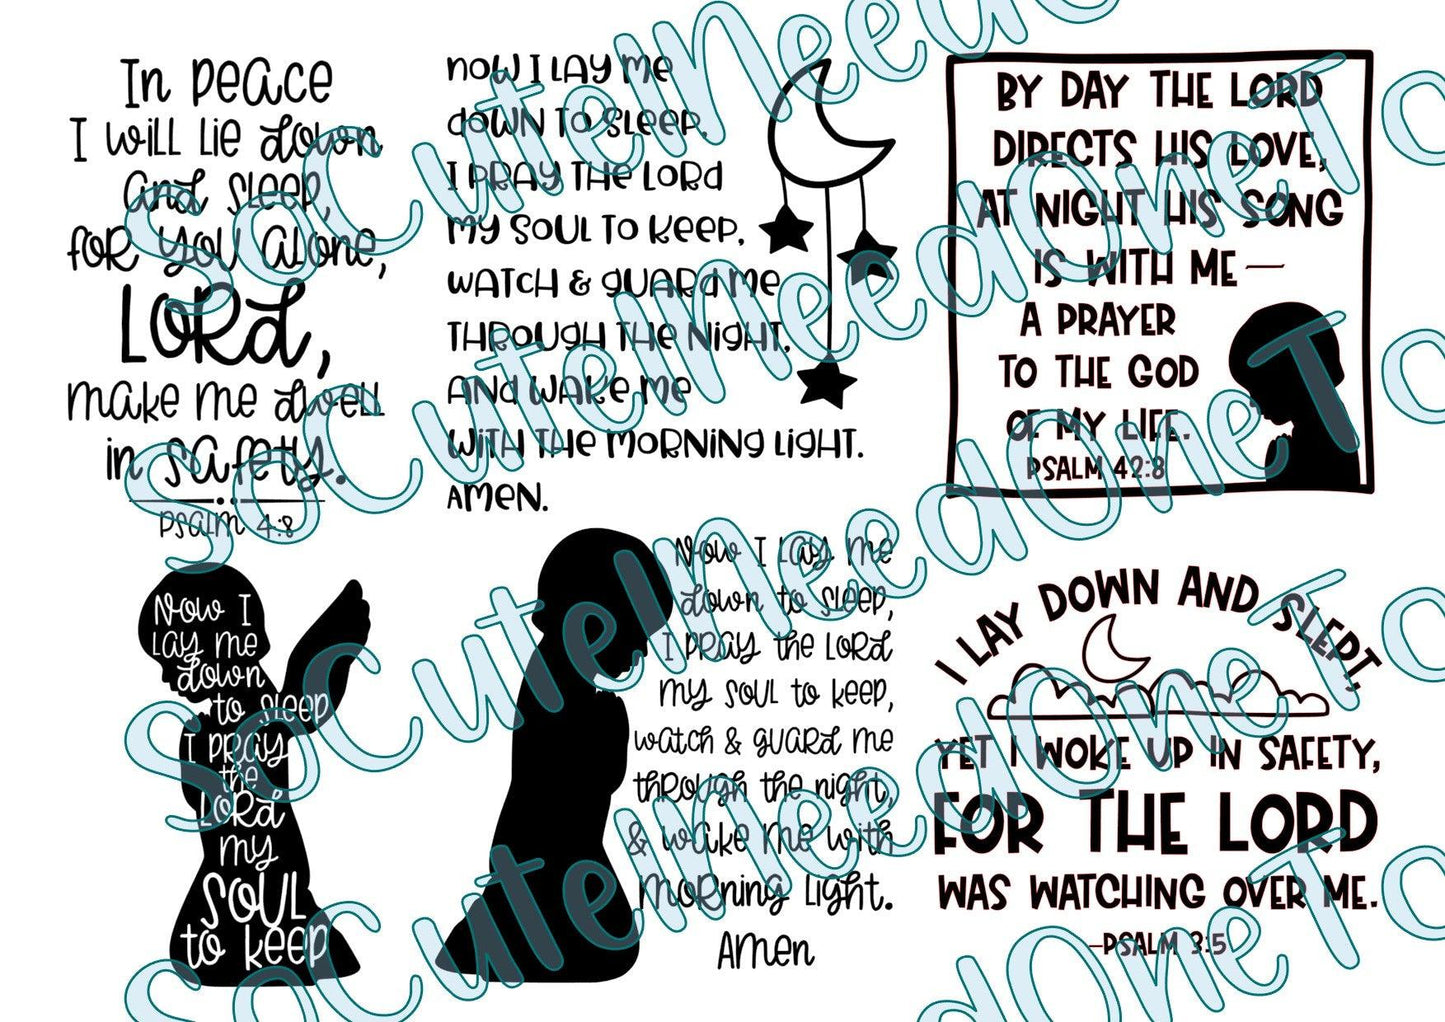 In peace
I will lie down
and sleep,
for you alone,
LORD,
make me dwell
in safety.
Psalm 4:8
Now I lay me
down to sleep,
I pray the Lord
my soul to keep,
watch & guard me
through the night,
and wake me
with the morning light.
Amen.
BY DAY THE LORD
DIRECTS HIS LOVE,
AT NIGHT HIS SONG
IS WITH ME—
A PRAYER
TO THE GOD
OF MY LIFE.
PSALM 42:8
Now I
lay me
down
to sleep
I pray
the
Lord
my
soul
to keep
Now I lay me
down to sleep,
I pray the Lord
my soul to keep,
watch & guard me
through the night,
& wake me with
morning light.
Amen
I LAY DOWN AND SLEPT,
YET I WOKE UP IN SAFETY,
FOR THE LORD
WAS WATCHING OVER ME.
—PSALM 3:5
SoCuteINeedOneToo
SoCuteINeedOneTo
SoCuteINeedOneTo
SoCuteINeedOneTo